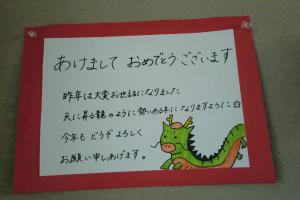 あけまして おめでとう ございます
昨年は大変お世話になりました
天に昇る龍のように 勢いある年になりますように☆
今年も どうぞ よろしく
お願い申しあげます。